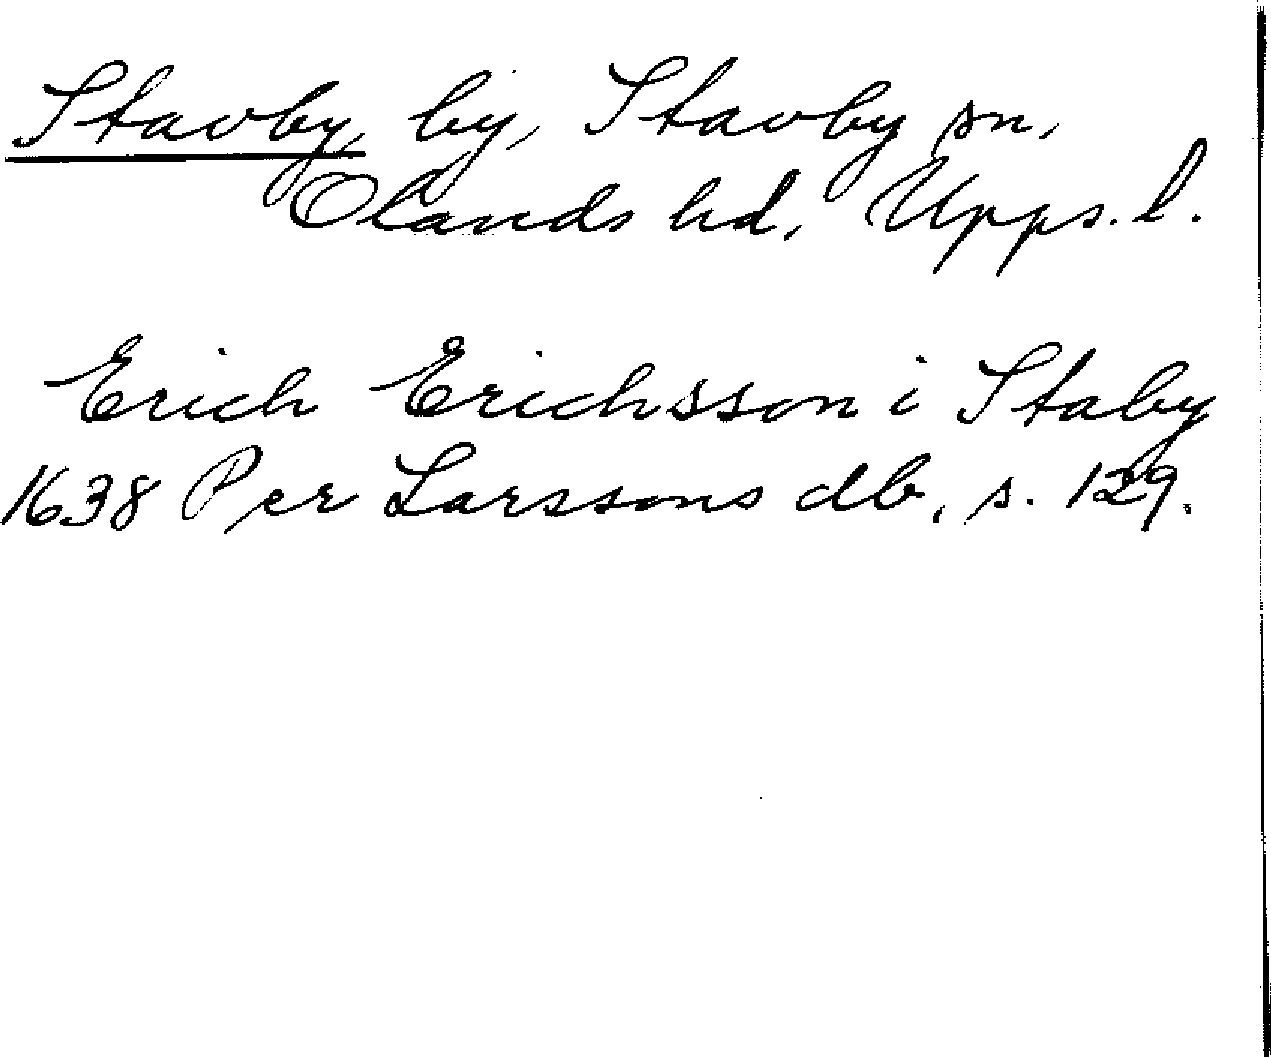 Stavby, by, Stavby sn,
Olands hd, Upps. l.
Erich Erichsson i Staby
1638 Per Larssons db, s. 129.